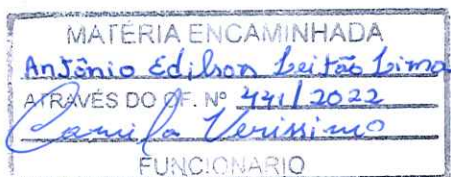 MATÉRIA ENCAMINHADA
Antônio Edilson Leitão Lima
ATRAVÉS DO OF. Nº 441/2022
Camila Verissimo
FUNCIONARIO